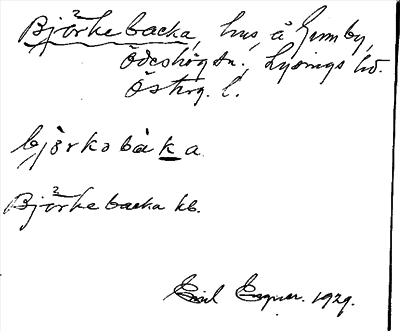 Björkebacka, hus, å Gumby,
Ödeshög sn., Lysings hd.
Östrg. l.
bjö̀rkəbàka
Björkebacka kb.
1929.